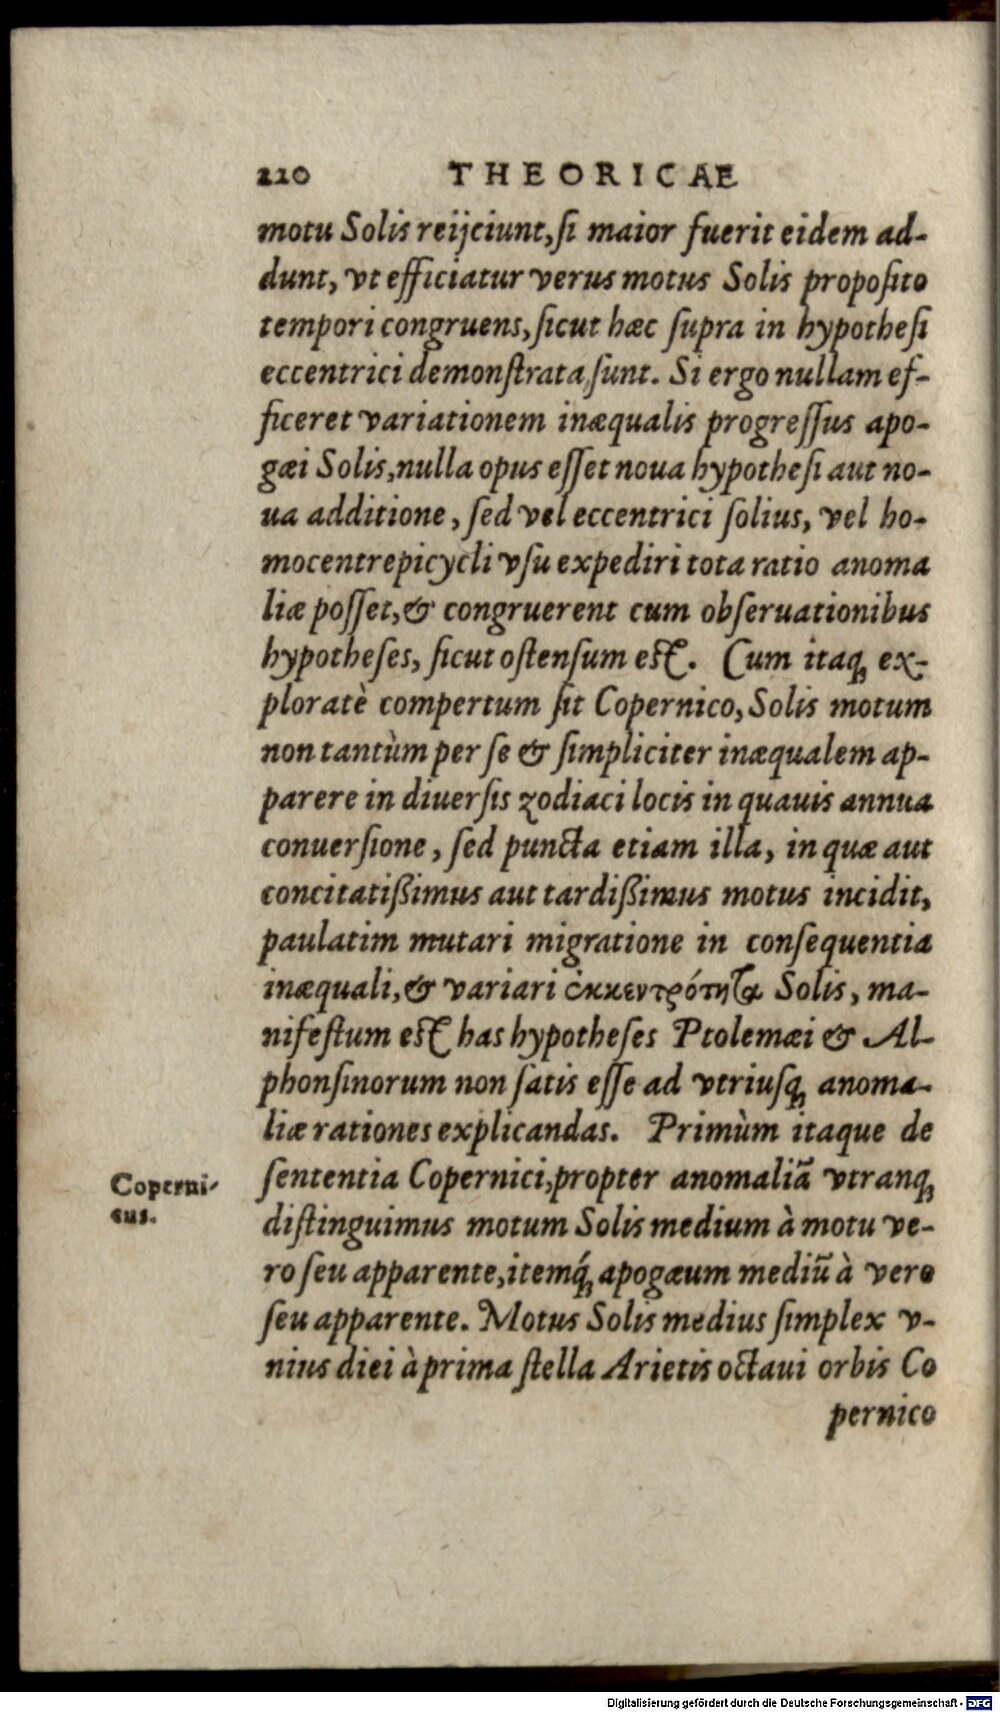 220 THEORICAE
motu Solis reijciunt, ſi maior fuerit eidem ad-
dunt, vt efficiatur verus motus Solis propoſito
tempori congruens, ſicut hæc ſupra in hypotheſi
eccentrici demonſtrata ſunt. Si ergo nullam ef-
ficeret variationem inæqualis progreſſus apo-
gæi Solis, nulla opus eſſet noua hypotheſi aut no-
ua additione, ſed vel eccentrici ſolius, vel ho-
mocentrepicycli vſu expediri tota ratio anoma
liæ poſſet, & congruerent cum obſeruationibus
hypotheſes, ſicut oſtenſum eſt. Cum itaq; ex-
ploratè compertum ſit Copernico, Solis motum
non tantùm per ſe & ſimpliciter inæqualem ap-
parere in diuerſis zodiaci locis in quauis annua
conuerſione, ſed puncta etiam illa, in quæ aut
concitatißimus aut tardißimus motus incidit,
paulatim mutari migratione in conſequentia
inæquali, & variari ἐκκεντρότητα Solis, ma-
nifeſtum eſt has hypotheſes Ptolemæi & Al-
phonſinorum non ſatis eſſe ad vtriuſq; anoma-
liæ rationes explicandas. Primùm itaque de
Coperni-
cus.
ſententia Copernici, propter anomaliã vtranq;
diſtinguimus motum Solis medium à motu ve-
ro ſeu apparente, itemq́; apogæum mediũ à vero
ſeu apparente. Motus Solis medius ſimplex v-
nius diei à prima ſtella Arietis octaui orbis Co
pernico
Digitalisierung gefördert durch die Deutsche Forschungsgemeinschaft - DFG